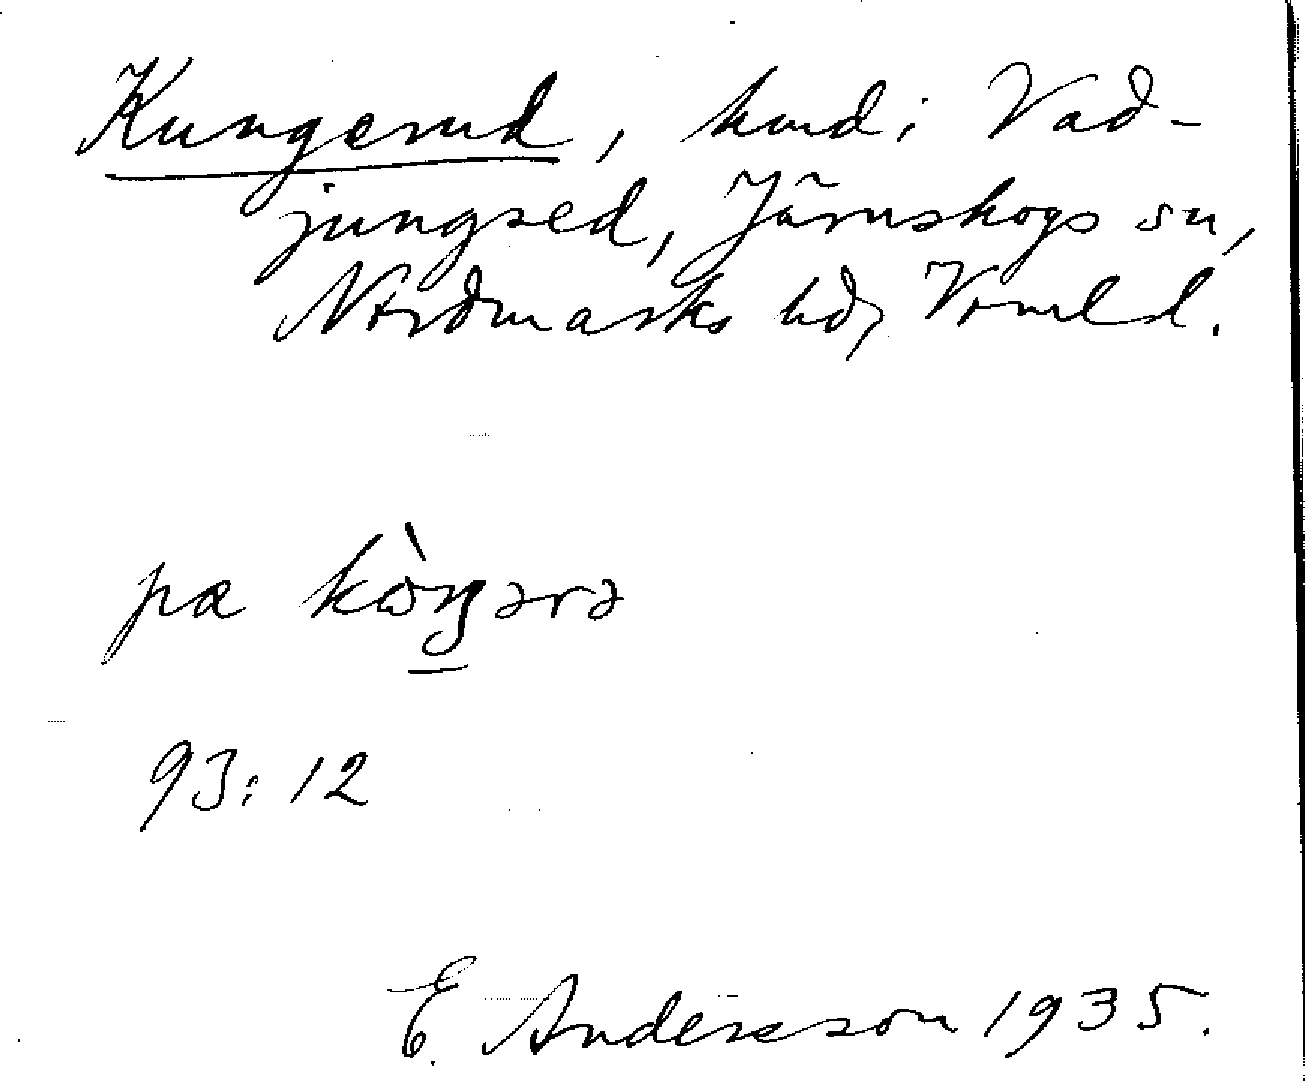 Kungerud, hmd i Vad-
jungsed, Järnskogs sn,
Nordmarks hd, Vrmld.
pæ kòŋərə
93:12
E. Andersson 1935.